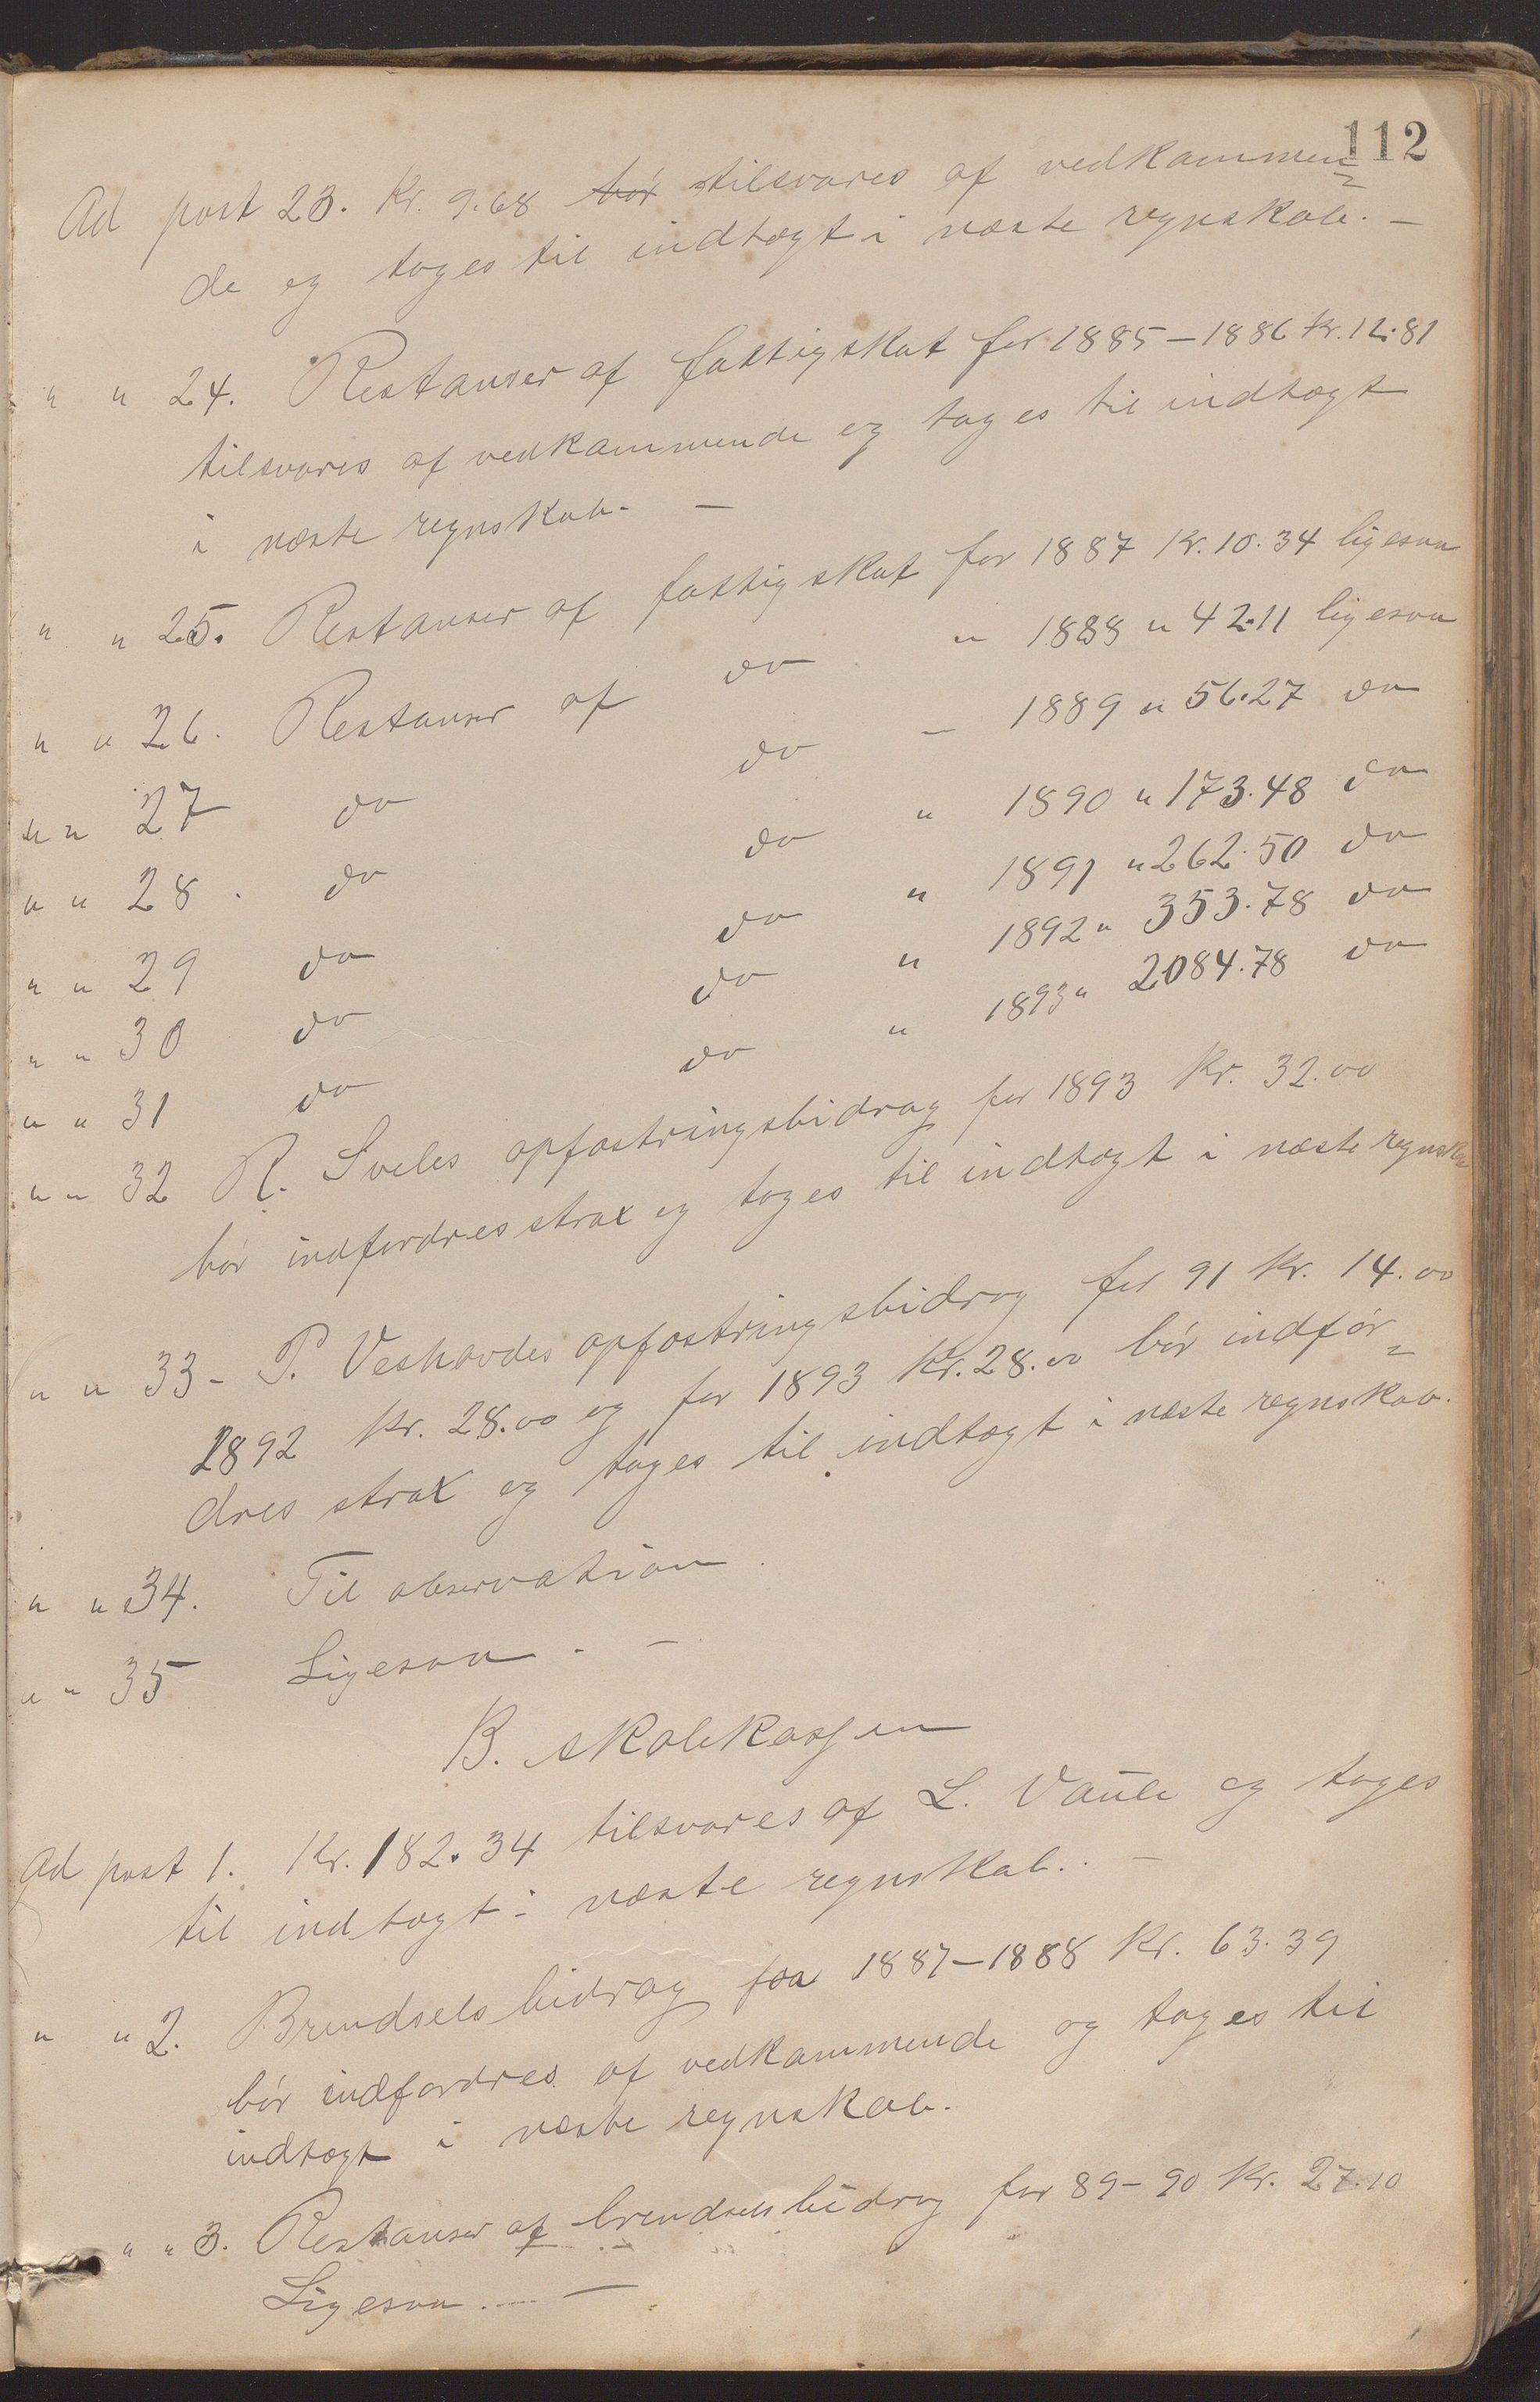 112
Ad post 23. Kr. 9.68 bör tilsvares af vedkommen=
de og tages til indtægt i næste regnskab. —
" " 24. Restanser af fattigskat for 1885—1886 Kr. 12.81
tilsvares af vedkommende og tages til indtægt
i næste regnskab. —
" " 25. Restanser af fattigskat for 1887 Kr. 10.34 ligesaa
" " 26. Restanser af do " 1888 " 42.11 ligesaa
" " 27 do do — 1889 " 56.27 do
" " 28. do do " 1890 " 173.48 do
" " 29 do do " 1891 " 262.50 do
" " 30 do do " 1892 " 353.78 do
" " 31 do do " 1893 " 2084.78 do
" " 32 R. Sveles opfostringsbidrag for 1893 Kr. 32.00
bör indfordres strax og tages til indtægt i næste regnskab
" " 33 - P. Veshovdes opfostringsbidrag for 91 Kr. 14.00
1892 Kr. 28.00 og for 1893 Kr. 28.00 bör indfor=
dres strax og tages til indtægt i næste regnskab.
" " 34. Til observation.
" " 35 Ligesaa. —
B. Skolekassen
Ad post 1. Kr. 182.34 tilsvares af L. Vaule og tages
til indtægt i næste regnskab. —
" " 2. Brendselsbidrag fra 1887—1888 Kr. 63.39
bör indfordres af vedkommende og tages til
indtægt i næste regnskab.
" " 3. Restanser af brendselsbidrag for 89-90 Kr. 27.10
Ligesaa. —